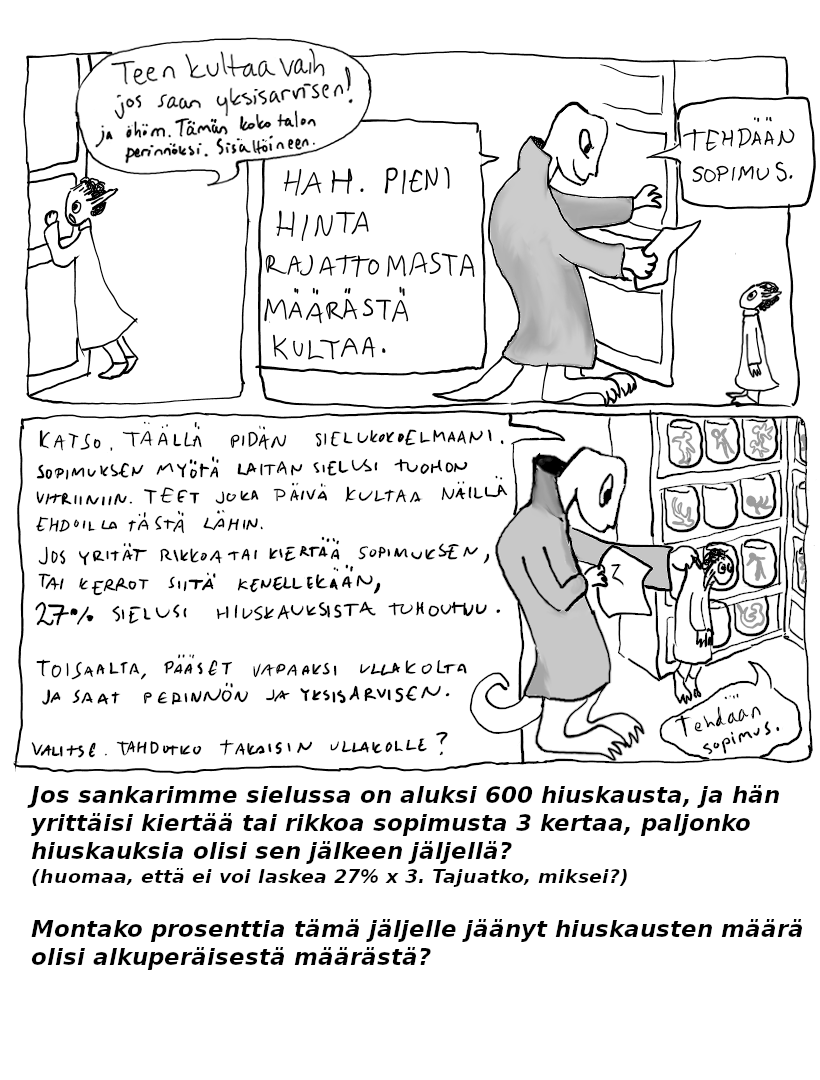 Teen kultaa vaih
jos saan yksisarvisen!
ja öhöm. Tämän koko talon
perinnöksi. Sisältöineen.
HAH. PIENI
HINTA
RAJATTOMASTA
MÄÄRÄSTÄ
KULTAA.
TEHDÄÄN
SOPIMUS.
KATSO. TÄÄLLÄ PIDÄN SIELUKOKOELMAANI.
SOPIMUKSEN MYÖTÄ LAITAN SIELUSI TUOHON
VITRIINIIN. TEET JOKA PÄIVÄ KULTAA NÄILLÄ
EHDOILLA TÄSTÄ LÄHIN.
JOS YRITÄT RIKKOA TAI KIERTÄÄ SOPIMUKSEN,
TAI KERROT SIITÄ KENELLEKÄÄN,
27% SIELUSI HIUSKAUKSISTA TUHOUTUU.
TOISAALTA, PÄÄSET VAPAAKSI ULLAKOLTA
JA SAAT PERINNÖN JA YKSISARVISEN.
VALITSE. TAHDOTKO TAKAISIN ULLAKOLLE?
Tehdään
sopimus.
Jos sankarimme sielussa on aluksi 600 hiuskausta, ja hän
yrittäisi kiertää tai rikkoa sopimusta 3 kertaa, paljonko
hiuskauksia olisi sen jälkeen jäljellä?
(huomaa, että ei voi laskea 27% x 3. Tajuatko, miksei?)
Montako prosenttia tämä jäljelle jäänyt hiuskausten määrä
olisi alkuperäisestä määrästä?